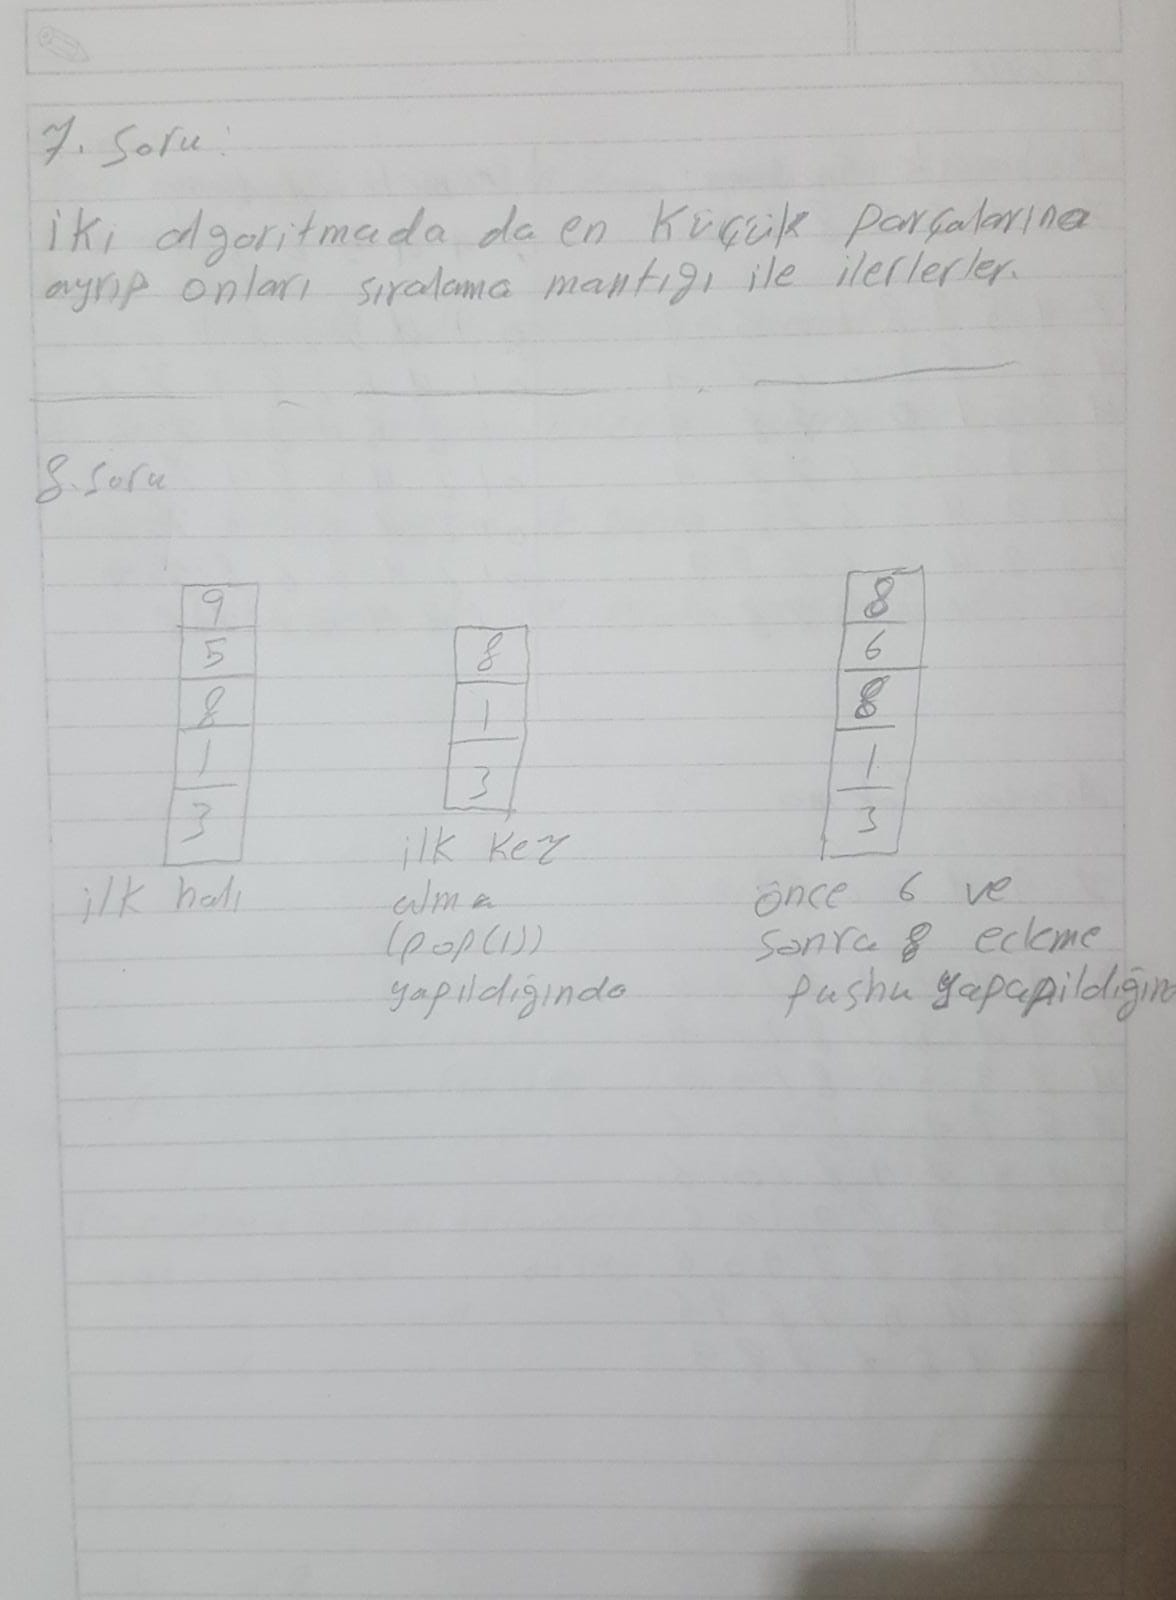 7. Soru:
iki algoritmada da en küçük parçalarına
ayrıp onları sıralama mantığı ile ilerlerler.
8. Soru
9
5
8
1
3
ilk hali
8
1
3
ilk kez
alma
(pop(1))
yapıldığında
8
6
8
1
3
önce 6 ve
sonra 8 eckme
pushu yapapıldığın